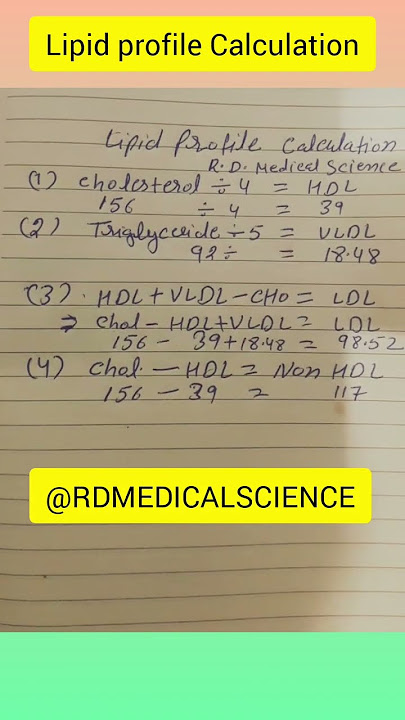 Lipid profile Calculation
Lipid Profile Calculation
R.D. Medical Science
(1) Cholesterol ÷ 4 = HDL
156 ÷ 4 = 39
(2) Triglyceride ÷ 5 = VLDL
92 ÷ = 18.48
(3) . HDL + VLDL - CHO = LDL
⇒ Chol - HDL + VLDL = LDL
156 - 39 + 18.48 = 98.52
(4) Chol. - HDL = Non HDL
156 - 39 = 117
@RDMEDICALSCIENCE